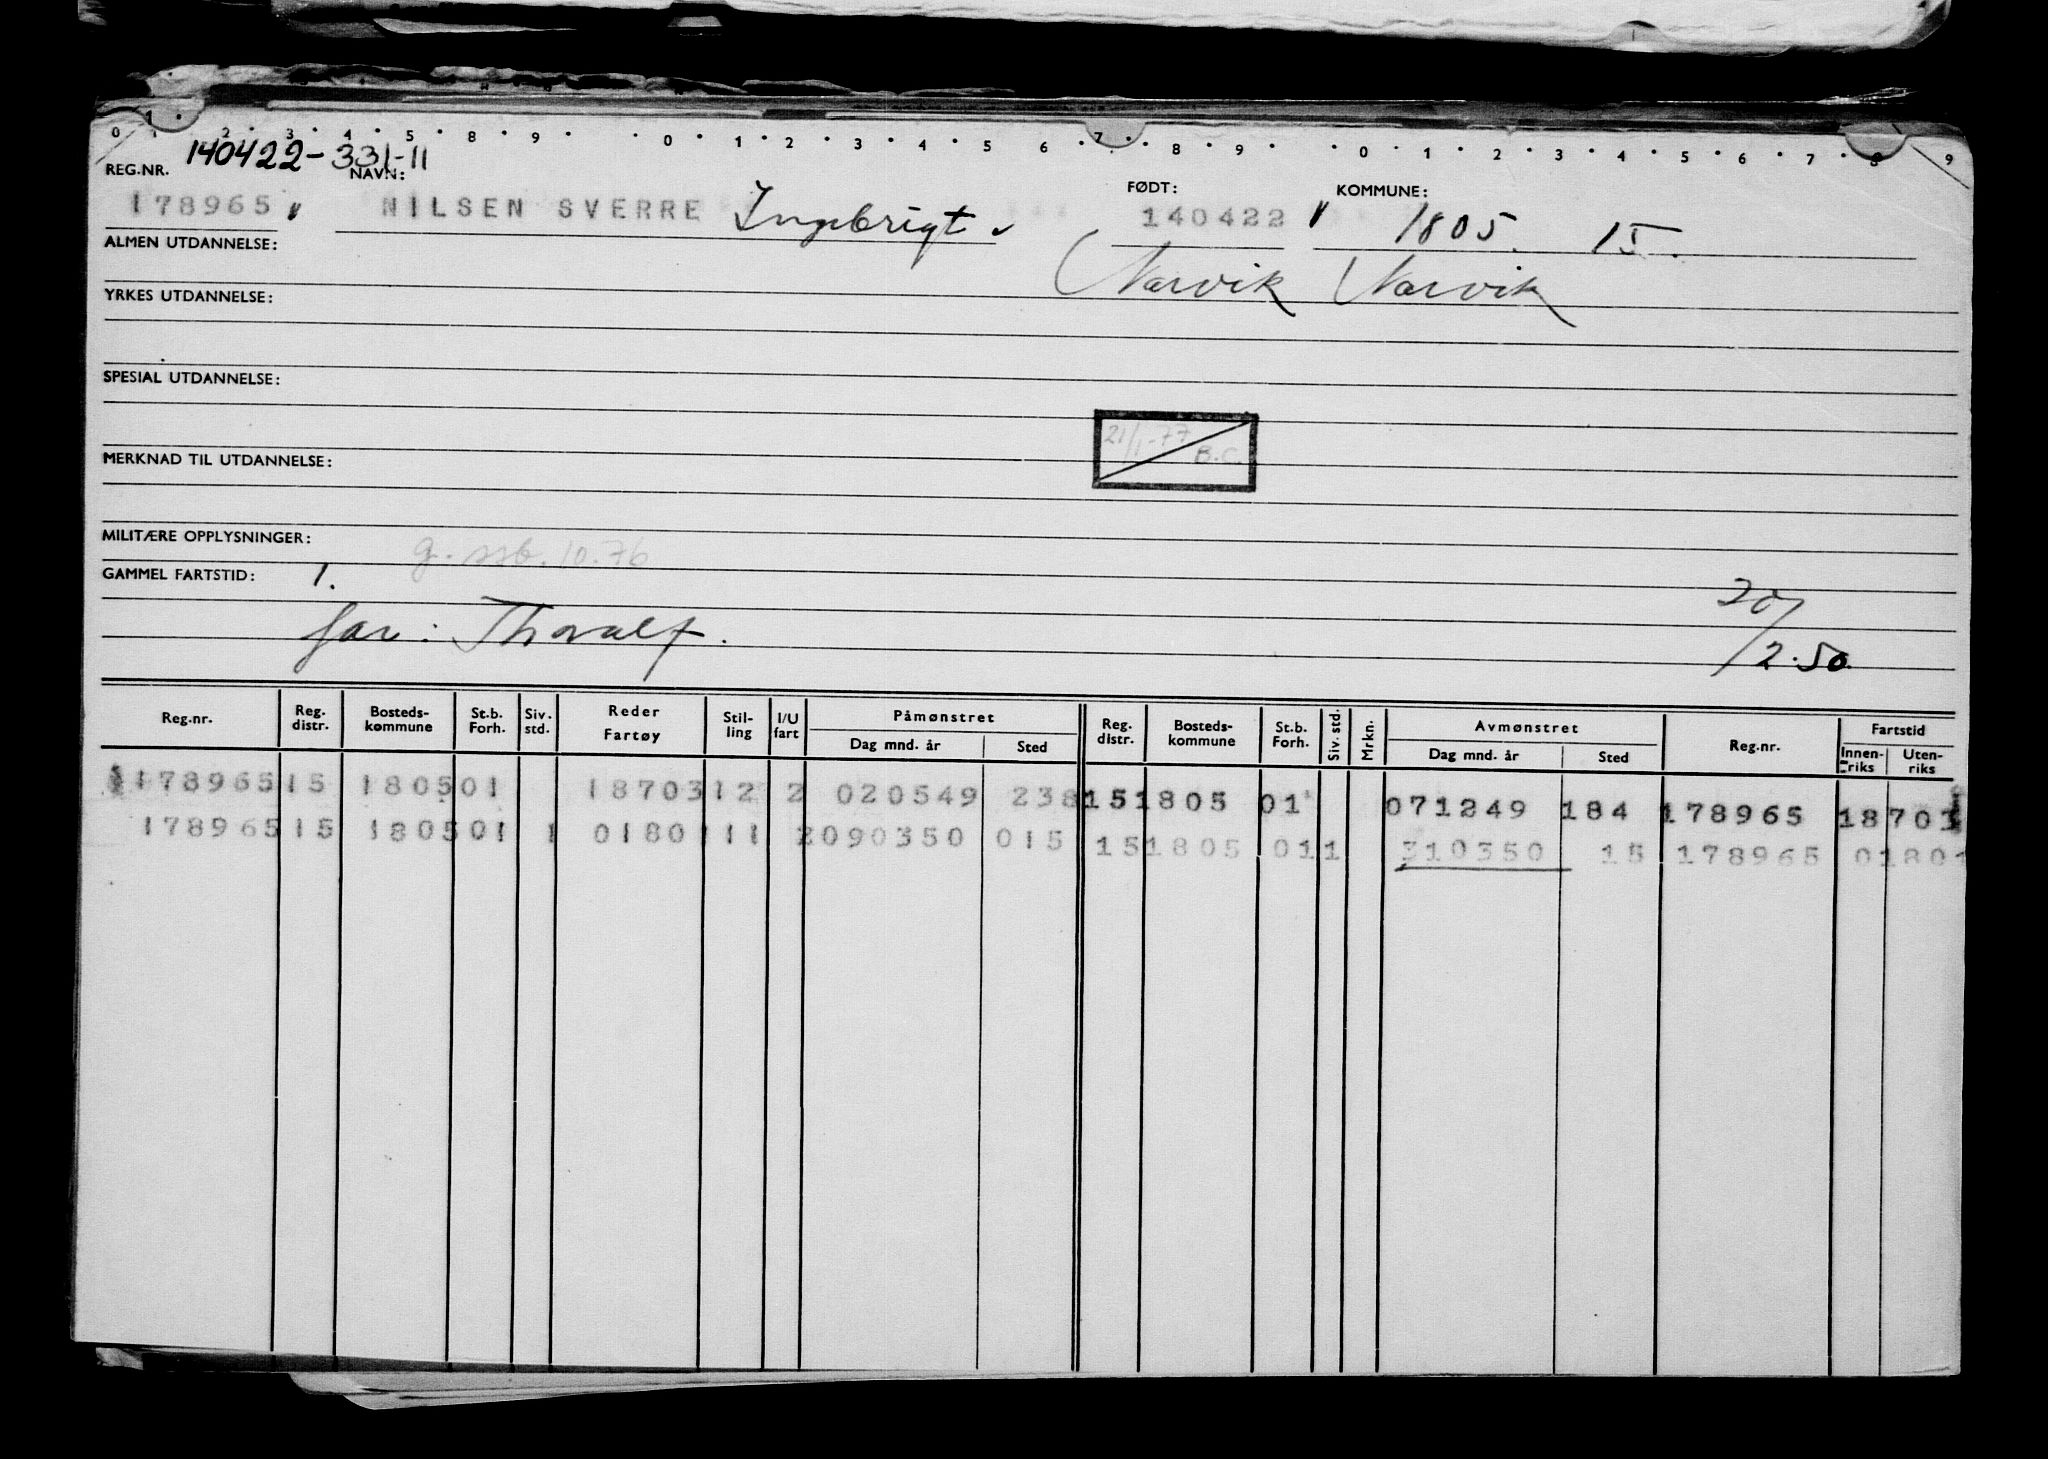 0 1 2 3 4 5 8 9 0 1 2 3 4 5 6 7 8 9 0 1 2 3 4 5 6 7 8 9
140422-331-11
REG.NR. NAVN: FØDT: KOMMUNE:
178965 NILSEN SVERRE Ingebrigt 140422 1805. 15.
ALMEN UTDANNELSE: Narvik Narvik
YRKES UTDANNELSE:
SPESIAL UTDANNELSE:
21/1-77 B.C.
MERKNAD TIL UTDANNELSE:
MILITÆRE OPPLYSNINGER: g. ssb. 10.76
GAMMEL FARTSTID: 1.
far: Thoralf. 20/2.50
Reg.nr. Reg. distr. Bosteds-kommune St.b. Forh. Siv. std. Reder Fartøy Stil-ling I/U fart Påmønstret Dag mnd. år Sted Reg. distr. Bosteds-kommune St.b. Forh. Siv. std. Mrkn. Avmønstret Dag mnd. år Sted Reg.nr. Fartstid Innen-riks Uten-riks
178965 15 1805 01 18703 12 2 020549 238 15 1805 01 071249 184 178965 18703
178965 15 1805 01 1 0180 1 11 2 090350 015 15 1805 01 1 310350 15 178965 01801